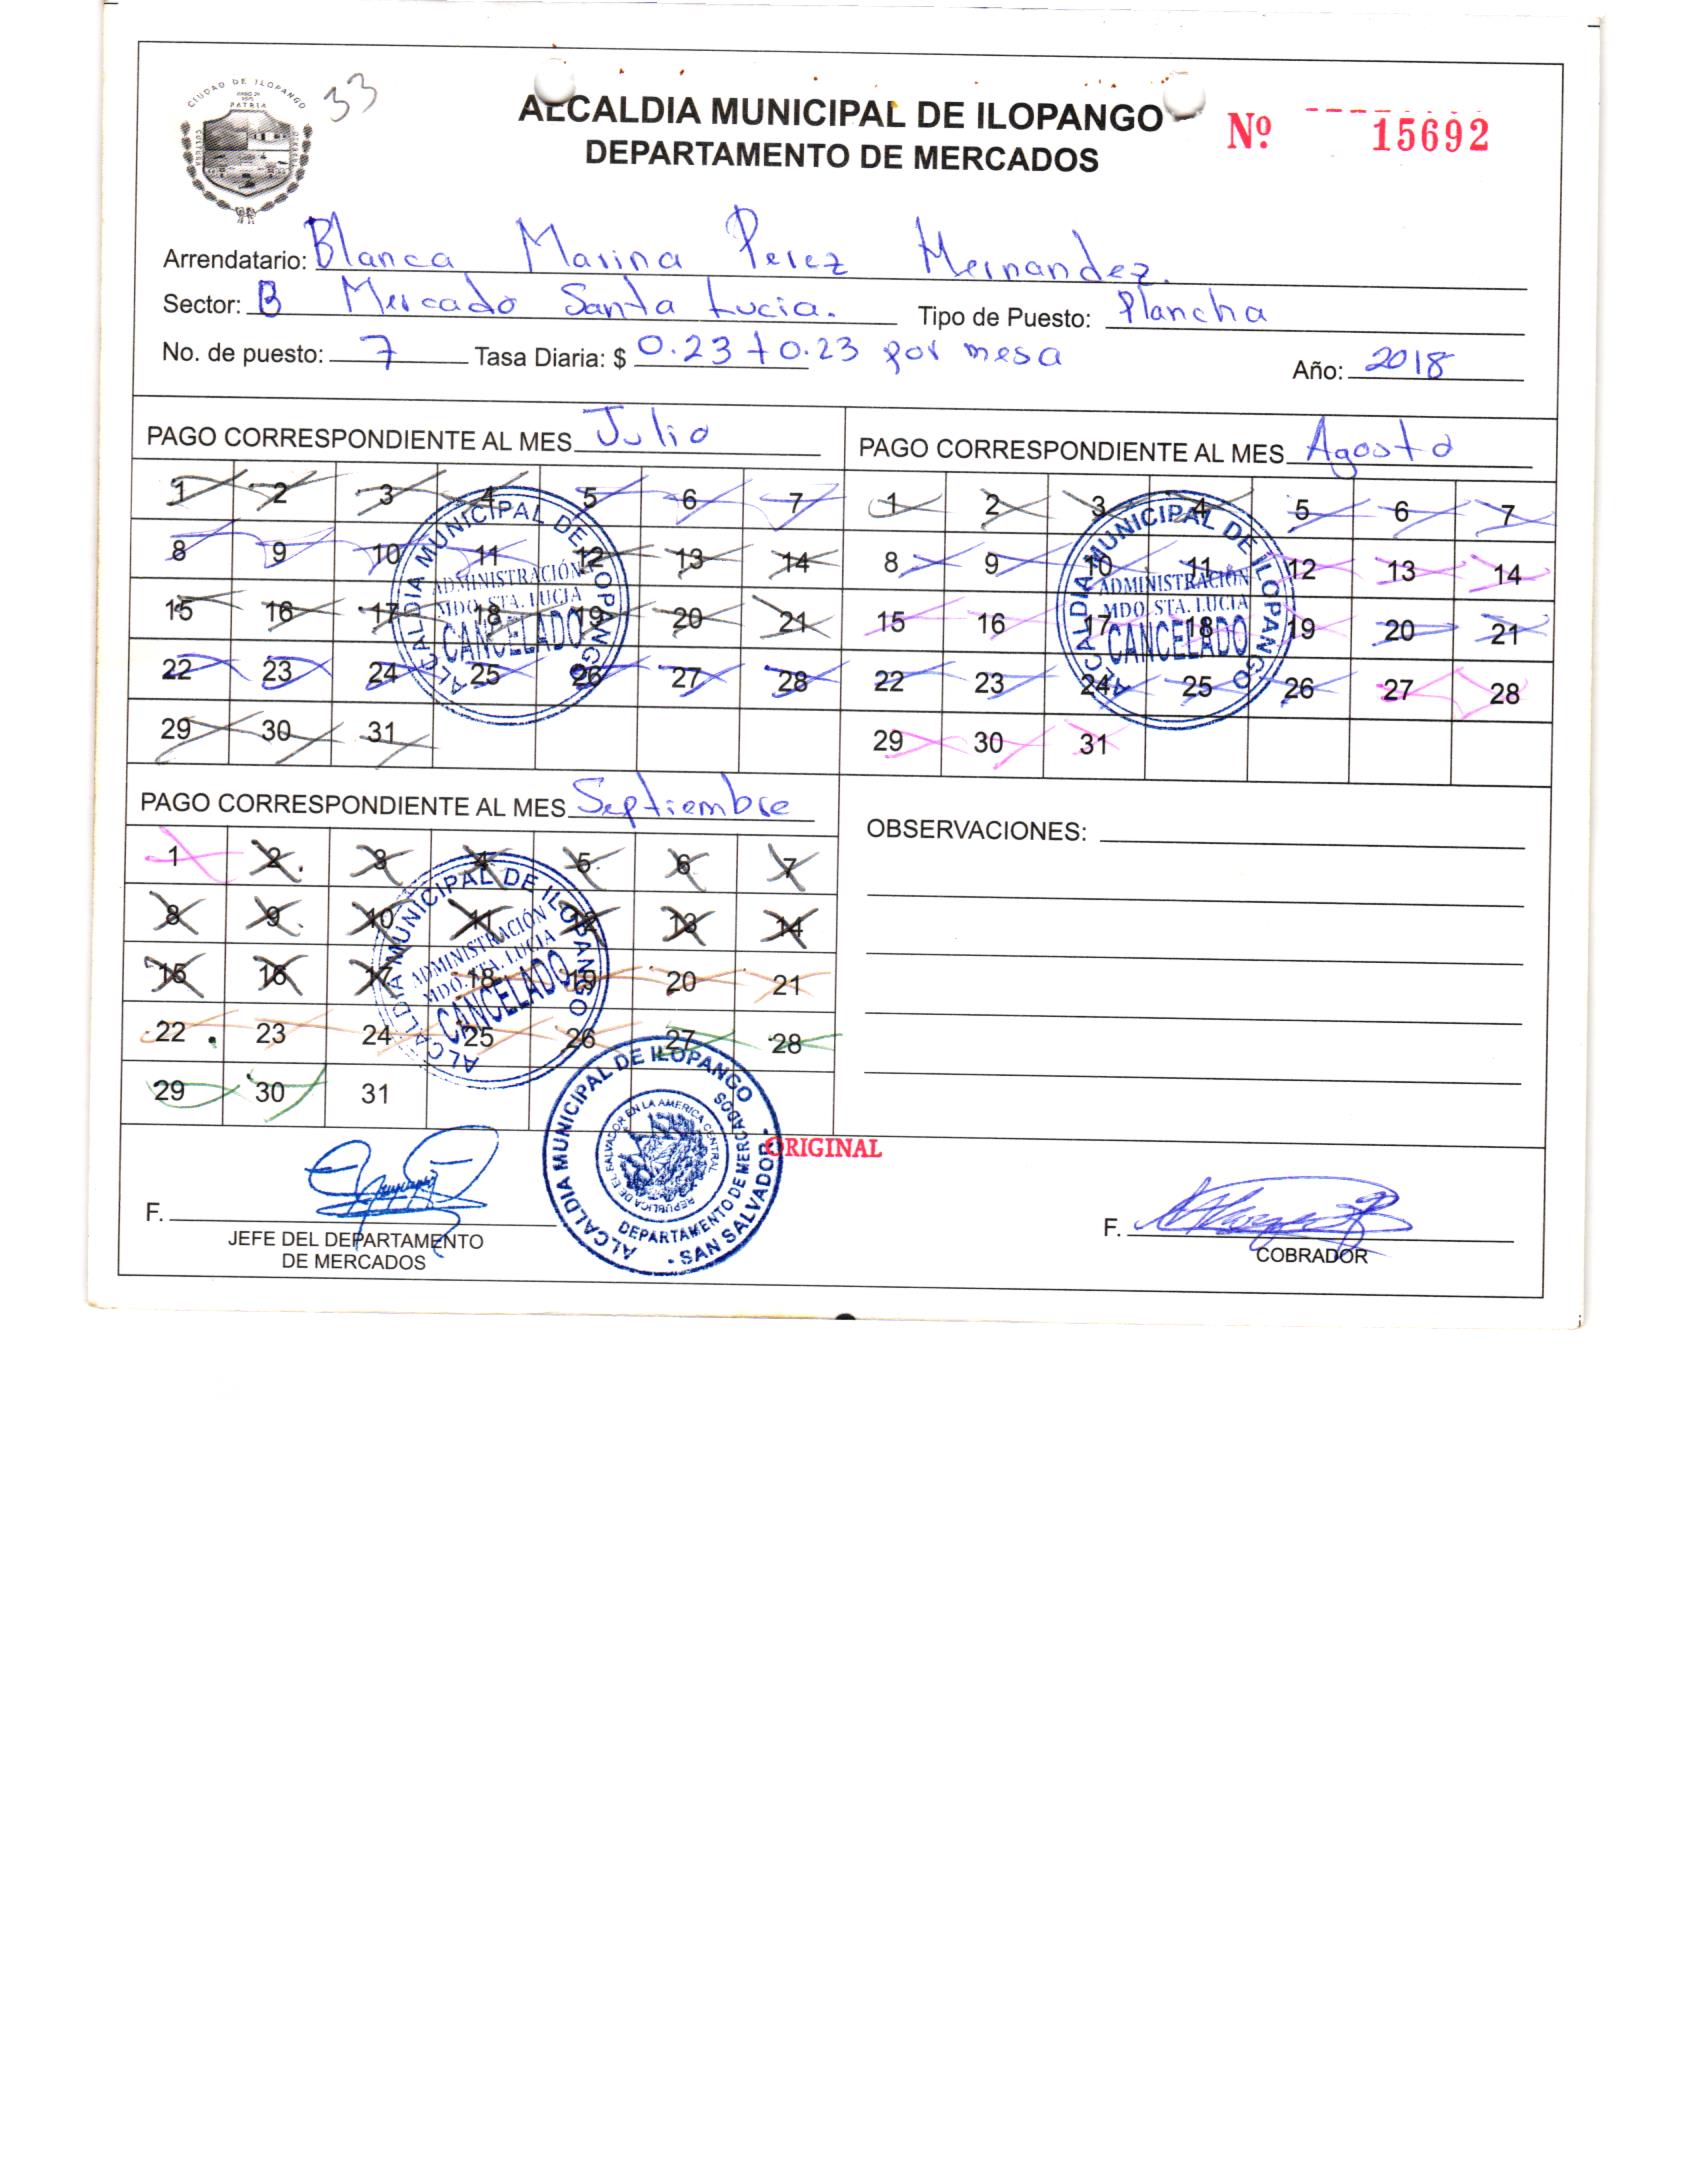 CIUDAD DE ILOPANGO
PATRIA
CULTURA
33
ALCALDIA MUNICIPAL DE ILOPANGO
DEPARTAMENTO DE MERCADOS
Nº 15692
Arrendatario: Blanca Marina Perez Hernandez.
Sector: B Mercado Santa Lucia. Tipo de Puesto: Plancha
No. de puesto: 7 Tasa Diaria: $ 0.23 + 0.23 por mesa Año: 2018
PAGO CORRESPONDIENTE AL MES Julio
1 2 3 4 5 6 7
8 9 10 11 12 13 14
15 16 17 18 19 20 21
22 23 24 25 26 27 28
29 30 31
ALCALDIA MUNICIPAL DE ILOPANGO
ADMINISTRACIÓN
MDO. STA. LUCIA
CANCELADO
PAGO CORRESPONDIENTE AL MES Agosto
1 2 3 4 5 6 7
8 9 10 11 12 13 14
15 16 17 18 19 20 21
22 23 24 25 26 27 28
29 30 31
ALCALDIA MUNICIPAL DE ILOPANGO
ADMINISTRACIÓN
MDO. STA. LUCIA
CANCELADO
PAGO CORRESPONDIENTE AL MES Septiembre
1 2 3 4 5 6 7
8 9 10 11 12 13 14
15 16 17 18 19 20 21
22 23 24 25 26 27 28
29 30 31
ALCALDIA MUNICIPAL DE ILOPANGO
ADMINISTRACIÓN
MDO. STA. LUCIA
CANCELADO
OBSERVACIONES:
ALCALDIA MUNICIPAL DE ILOPANGO
DEPARTAMENTO DE MERCADOS
- SAN SALVADOR -
REPUBLICA DE EL SALVADOR EN LA AMERICA CENTRAL
ORIGINAL
F.
JEFE DEL DEPARTAMENTO
DE MERCADOS
F.
COBRADOR